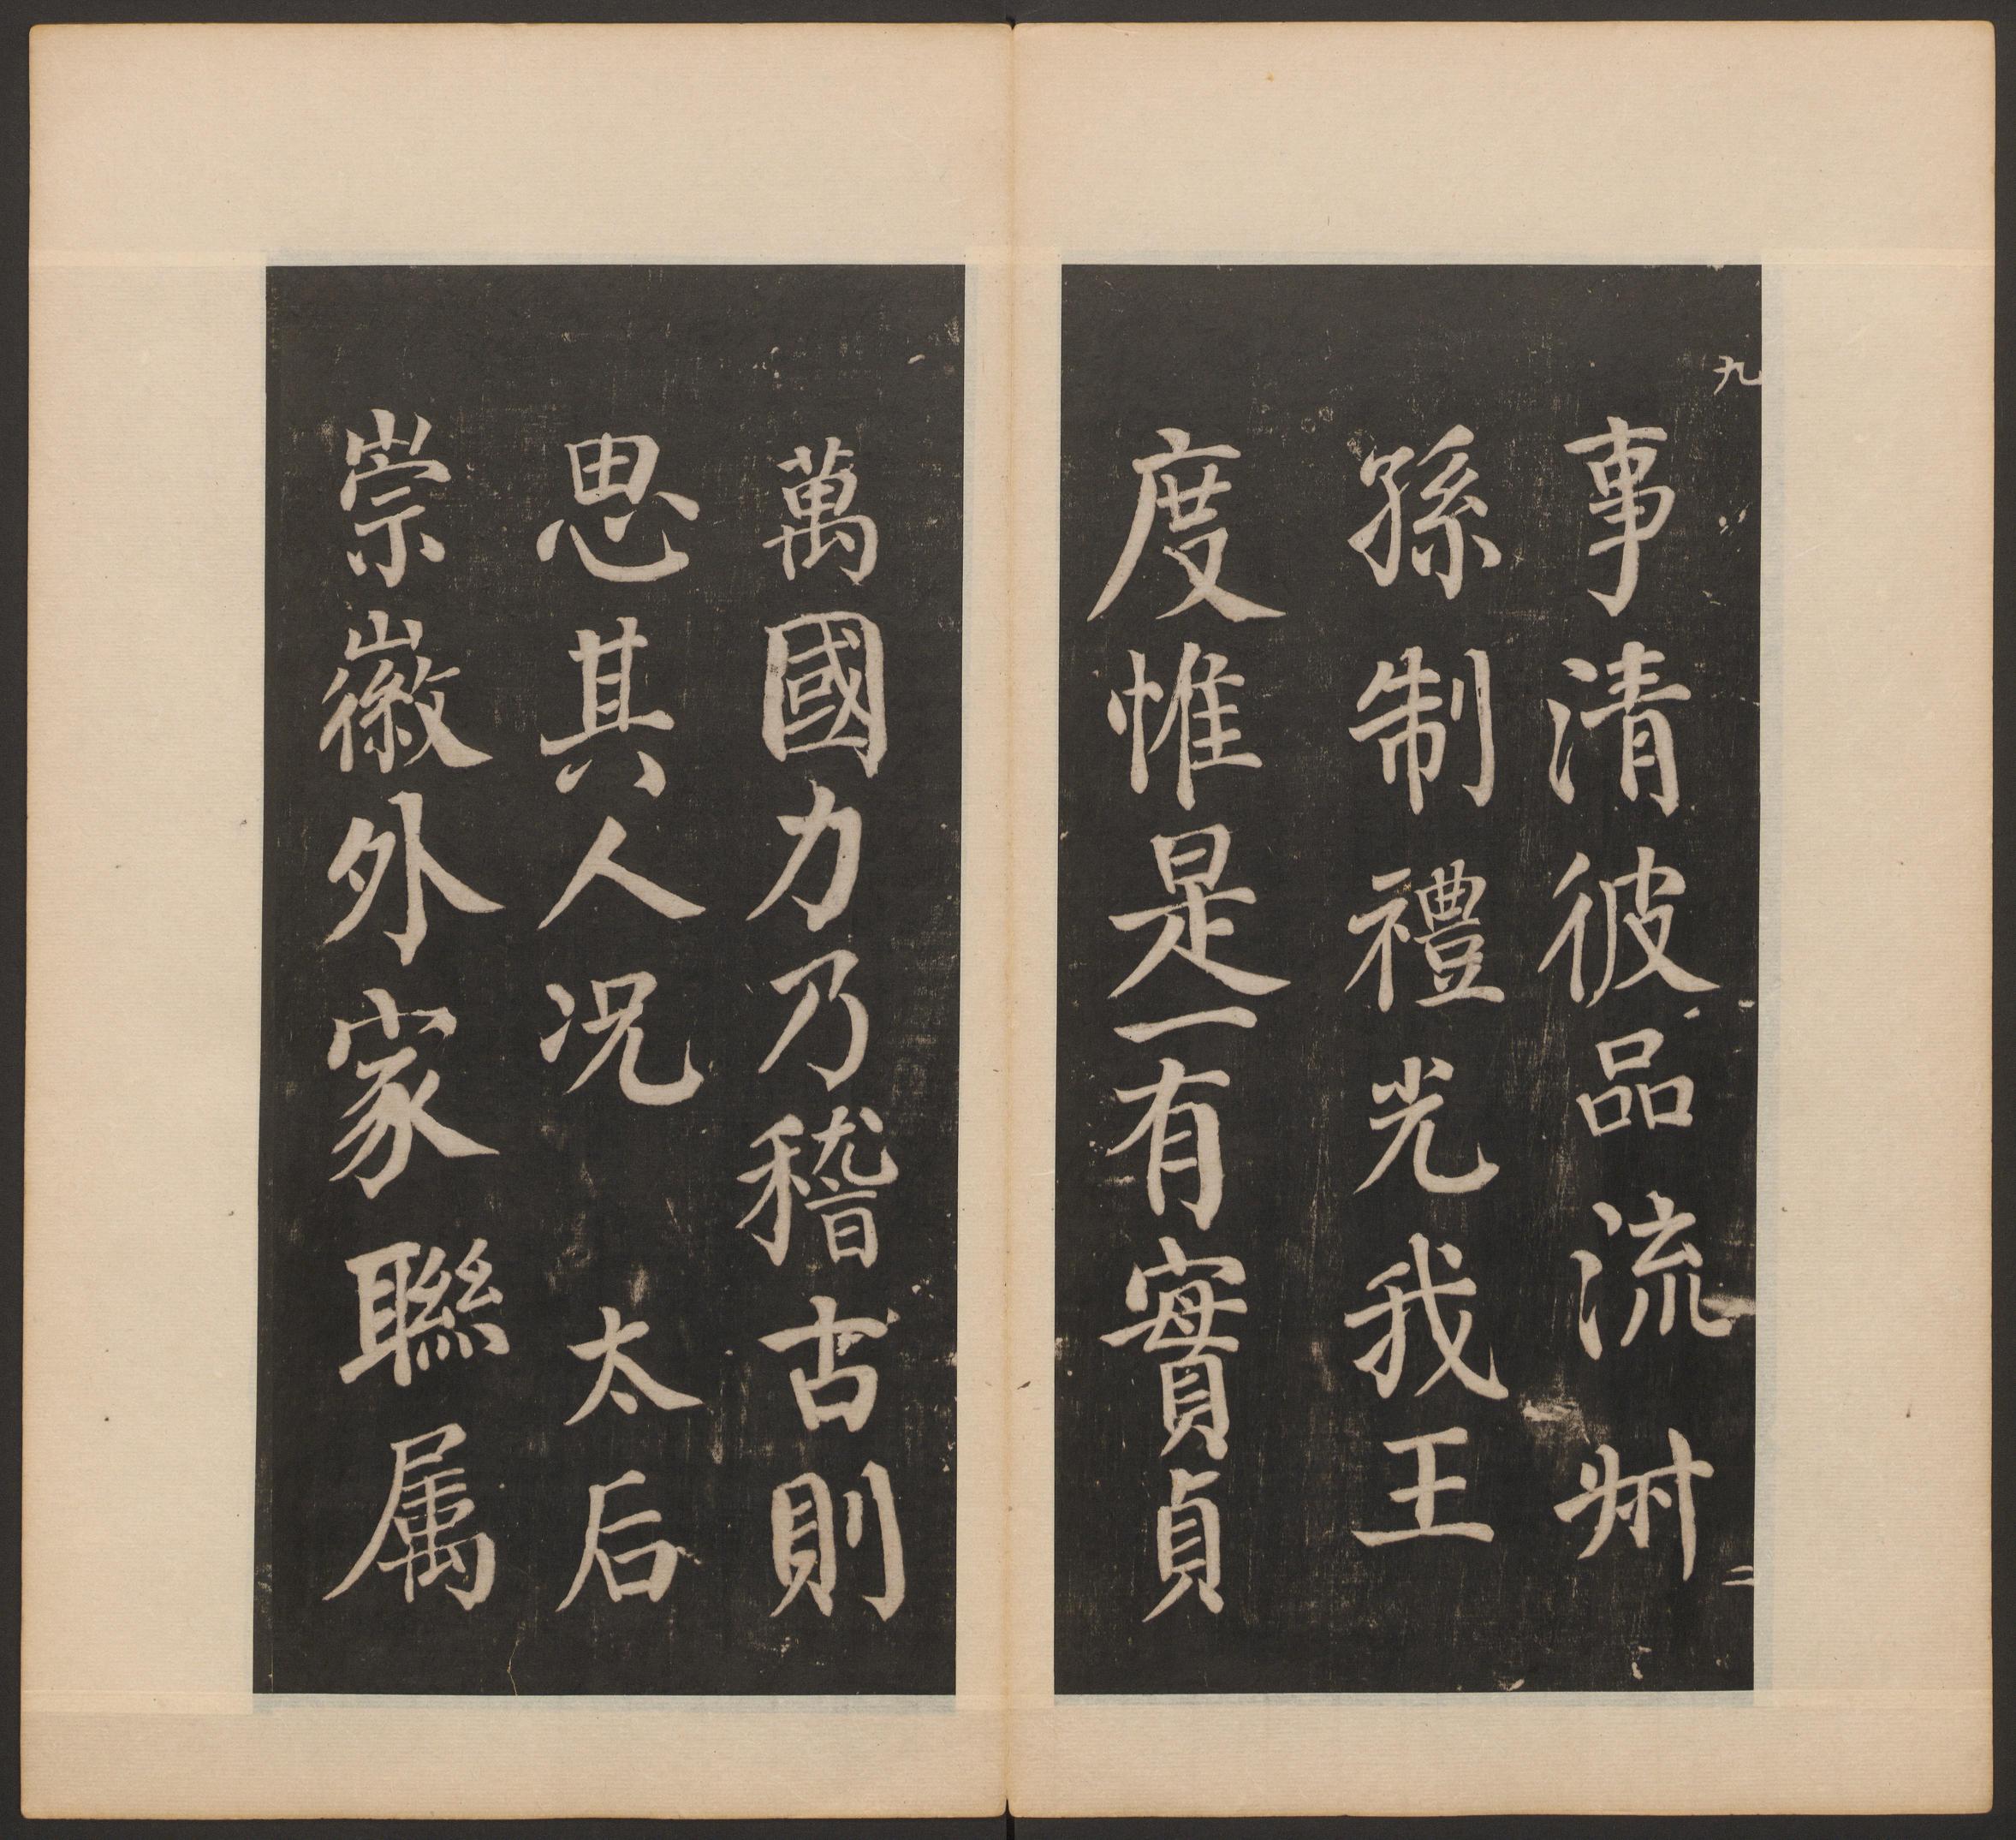 九
事清彼品流叔
二
孫制禮光我王
度惟是一有實貞
萬國力乃稽古則
思其人况 太后
崇徽外家聯属